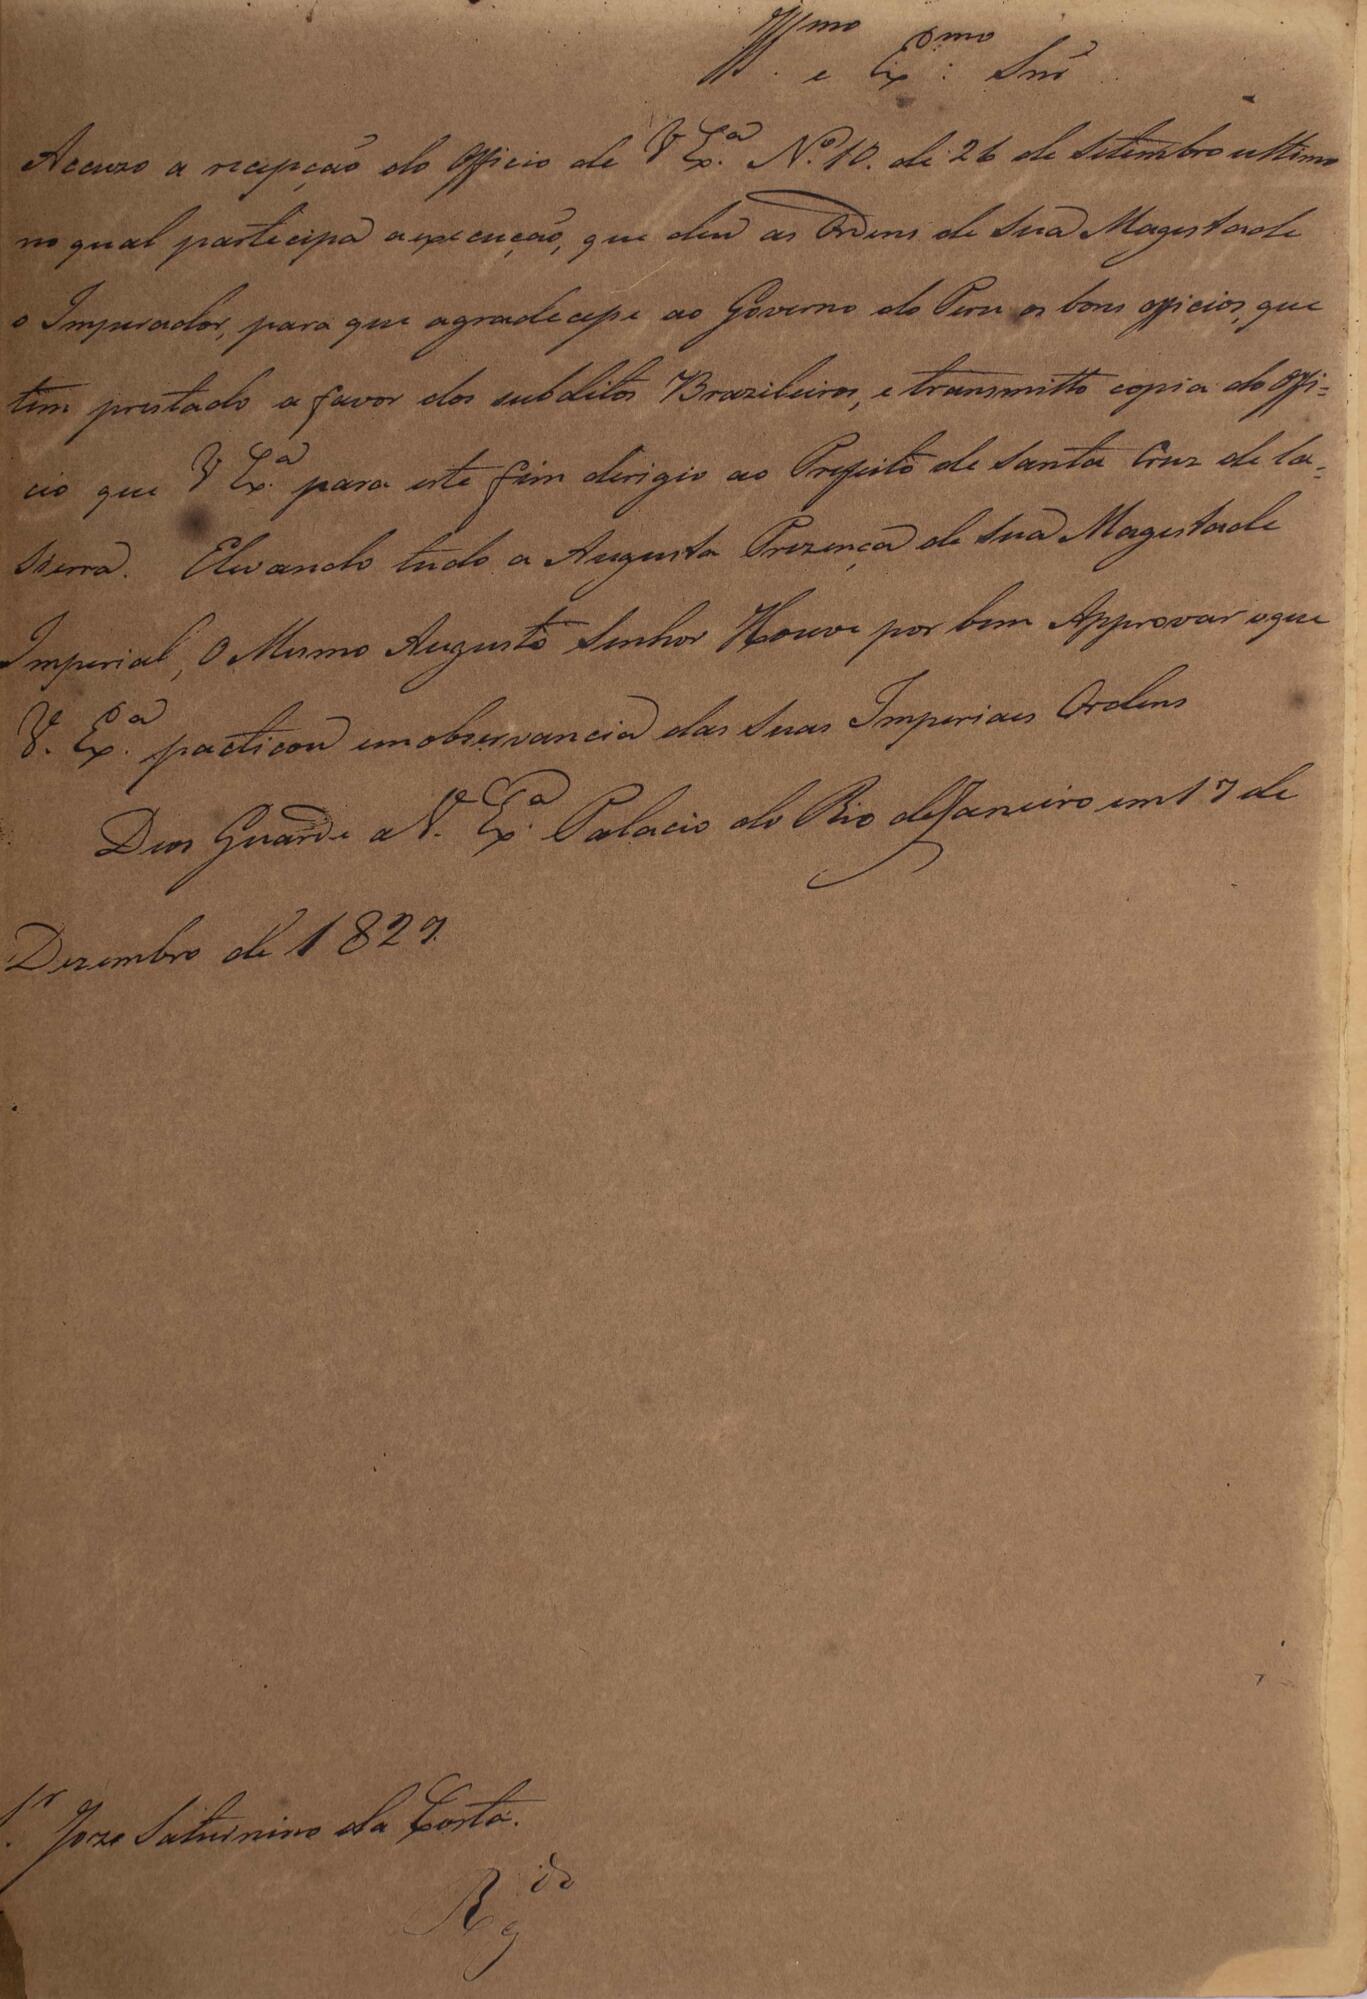 Illmo e Exmo: Snr
Accuzo a recepção do Officio de V Exa. No. 10. de 26 de Setembro ultimo
no qual participa a execução, que deu as Ordens de Sua Magestade
o Imperador, para que agradecesse ao Governo do Peru os bons officios, que
tem prestado a favor dos subditos Brazileiros, e transmitto copia do Offi-
cio que V Exa. para este fim dirigio ao Prefeito de Santa Cruz de la-
Sierra. Elevando tudo a Augusta Prezença de Sua Magestade
Imperial, O Mesmo Augusto Senhor Houve por bem Approvar o que
V. Exa. pacticou em observancia das Suas Imperiaes Ordens
Deos Guarde a V. Exa. Palacio do Rio de Janeiro em 17 de
Dezembro de 1827.
Sr. Joze Saturnino da Costa.
Rgdo